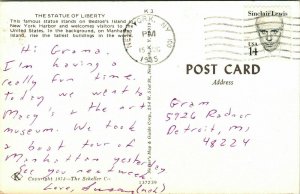 K 3
THE STATUE OF LIBERTY
This famous statue stands on Bedloe's Island in
New York Harbor and welcomes visitors to the
United States. In the background, on Manhattan
Island, rise the tallest buildings in the world.
Hi Grama.
I'm having a
really fun time.
Today we went to
Macy's & the art
museum. We took
a boat tour of
Manhattan yesterday
See you next week
Love,
NEW YORK, NY
PM
1985
Sinclair Lewis
USA
14
POST CARD
Address
Gram
5926 Radnor
Detroit, MI
48224
Copyright 1974—The Scheller Co.